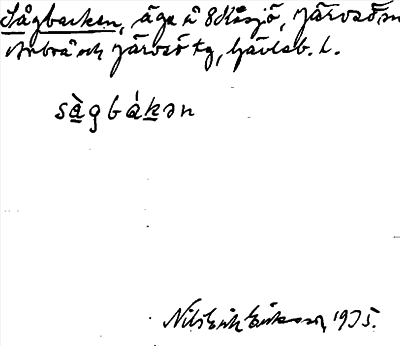 Sågbacken, äga i Mösjö, Järvsö sn
Arbrå och Järvsö tg, Gävleb. l.
sàgbákən
Nils Erik Eriksson, 1935.